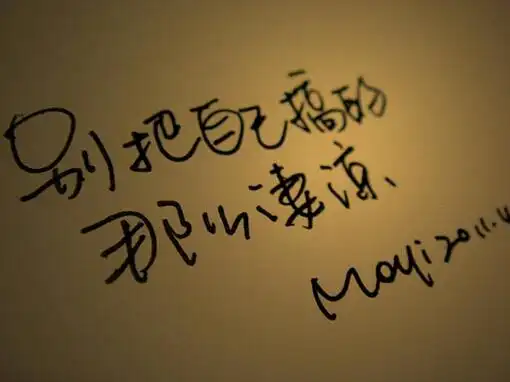 别把自己搞的
那么凄凉、
Mayi 2011.4